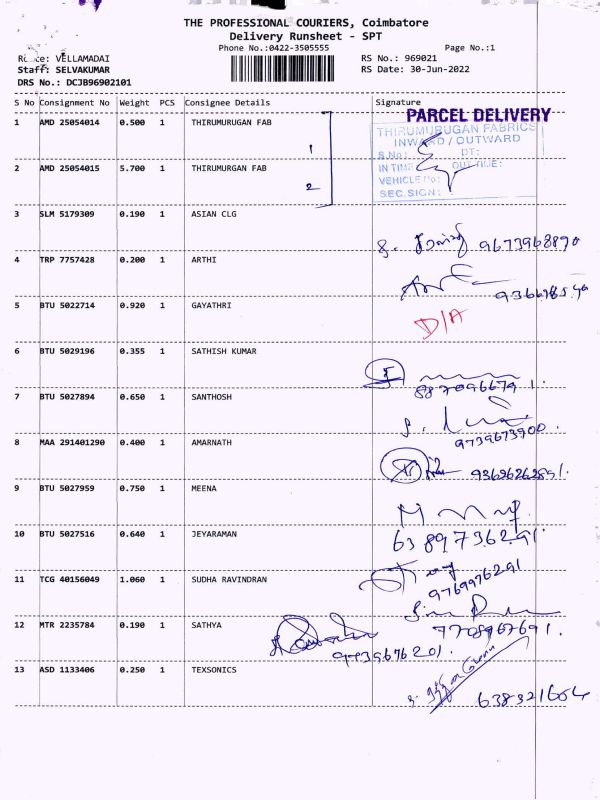 THE PROFESSIONAL COURIERS, Coimbatore
Delivery Runsheet - SPT
Phone No.:0422-3505555 Page No.:1
VELLAMADAI RS No.: 969021
Staff: SELVAKUMAR RS Date: 30-Jun-2022
DRS No.: DCJB96902101
S No Consignment No Weight PCS Consignee Details Signature
PARCEL DELIVERY
1 AMD 25054014 0.500 1 THIRUMURUGAN FAB
THIRUMURUGAN FABRICS
INWARD / OUTWARD
1
S.No: DT:
2 AMD 25054015 5.700 1 THIRUMURGAN FAB
IN TIME OUT TIME:
VEHICLE No:
2
SEC.SIGN:
3 SLM 5179309 0.190 1 ASIAN CLG
9673968890
4 TRP 7757428 0.200 1 ARTHI
5 BTU 5022714 0.920 1 GAYATHRI
D/A
6 BTU 5029196 0.355 1 SATHISH KUMAR
8870966791.
7 BTU 5027894 0.650 1 SANTHOSH
9739673900.
8 MAA 291401290 0.400 1 AMARNATH
9 BTU 5027959 0.750 1 MEENA
10 BTU 5027516 0.640 1 JEYARAMAN
6389736291.
11 TCG 40156049 1.060 1 SUDHA RAVINDRAN
9769976291
12 MTR 2235784 0.190 1 SATHYA
7708967691.
13 ASD 1133406 0.250 1 TEXSONICS